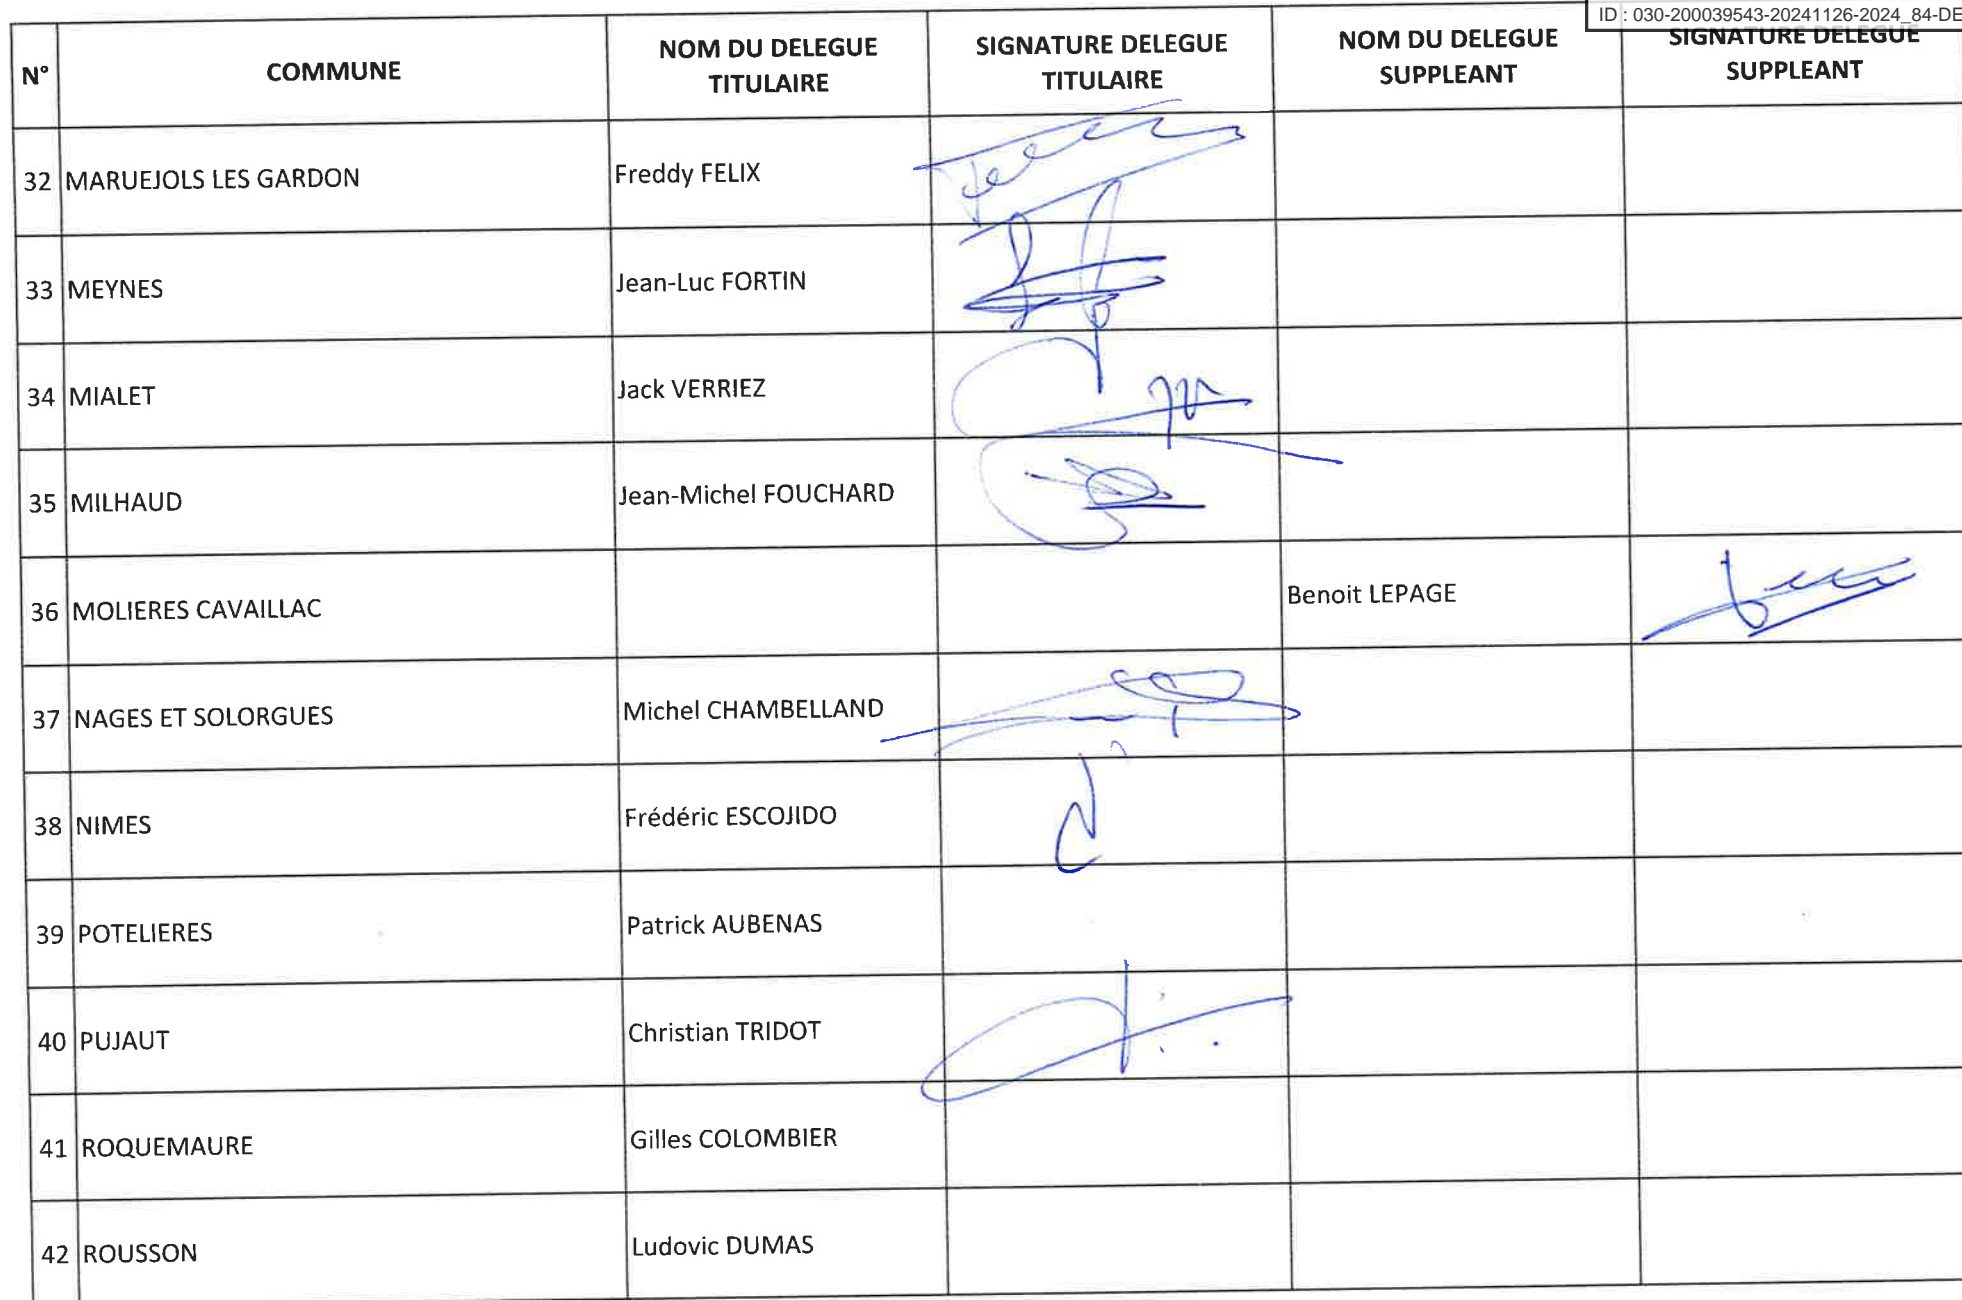 ID : 030-200039543-20241126-2024_84-DE
N° COMMUNE NOM DU DELEGUE TITULAIRE SIGNATURE DELEGUE TITULAIRE NOM DU DELEGUE SUPPLEANT SIGNATURE DELEGUE SUPPLEANT
32 MARUEJOLS LES GARDON Freddy FELIX
33 MEYNES Jean-Luc FORTIN
34 MIALET Jack VERRIEZ
35 MILHAUD Jean-Michel FOUCHARD
36 MOLIERES CAVAILLAC Benoit LEPAGE
37 NAGES ET SOLORGUES Michel CHAMBELLAND
38 NIMES Frédéric ESCOJIDO
39 POTELIERES Patrick AUBENAS
40 PUJAUT Christian TRIDOT
41 ROQUEMAURE Gilles COLOMBIER
42 ROUSSON Ludovic DUMAS